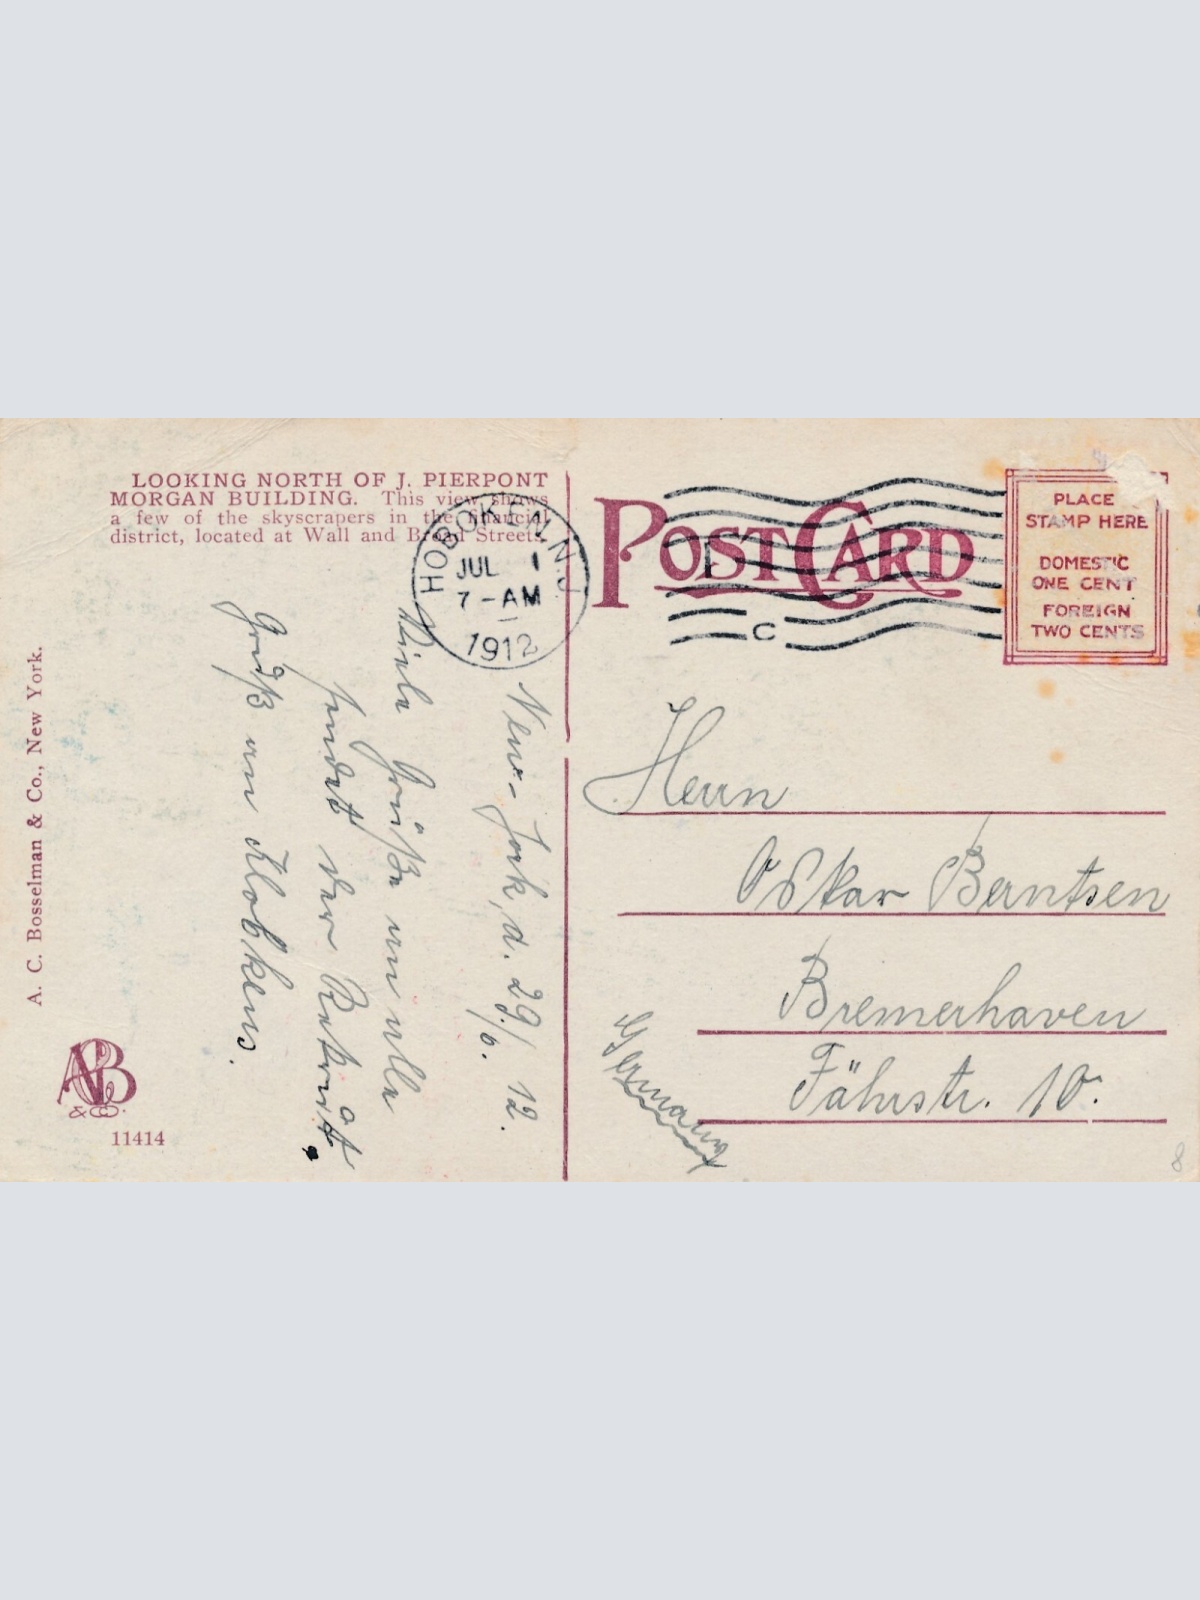 LOOKING NORTH OF J. PIERPONT
MORGAN BUILDING. This view shows
a few of the skyscrapers in the financial
district, located at Wall and Broad Streets.
HOBOKEN, N.J.
JUL 1
7-AM
1912
C
POST CARD
PLACE
STAMP HERE
DOMESTIC
ONE CENT
FOREIGN
TWO CENTS
New-York, d. 29/6. 12.
Viele Grüße an alle
sendet der Rekrut.
Gruß an Klobkens.
Herrn
Oskar Berntsen
Bremerhaven
Fährstr. 10.
Germany
A. C. Bosselman & Co., New York.
ACB
& CO.
11414
8